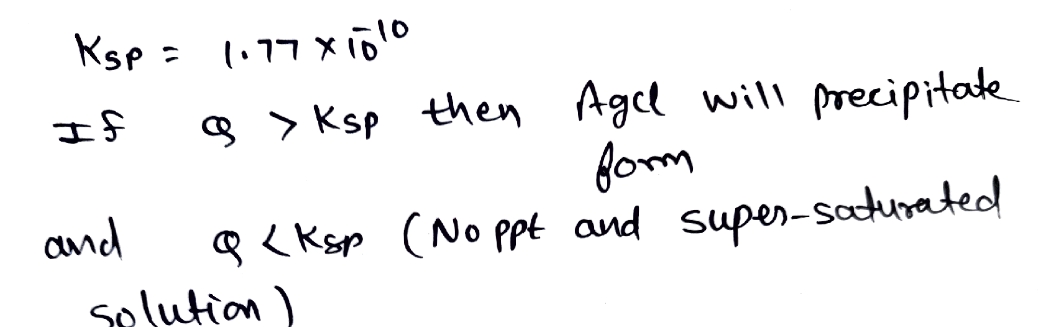 Ksp = 1.77 × 10⁻¹⁰
If Q > Ksp then Agcl will precipitate
form
and Q < Ksp (No ppt and super-saturated
solution)